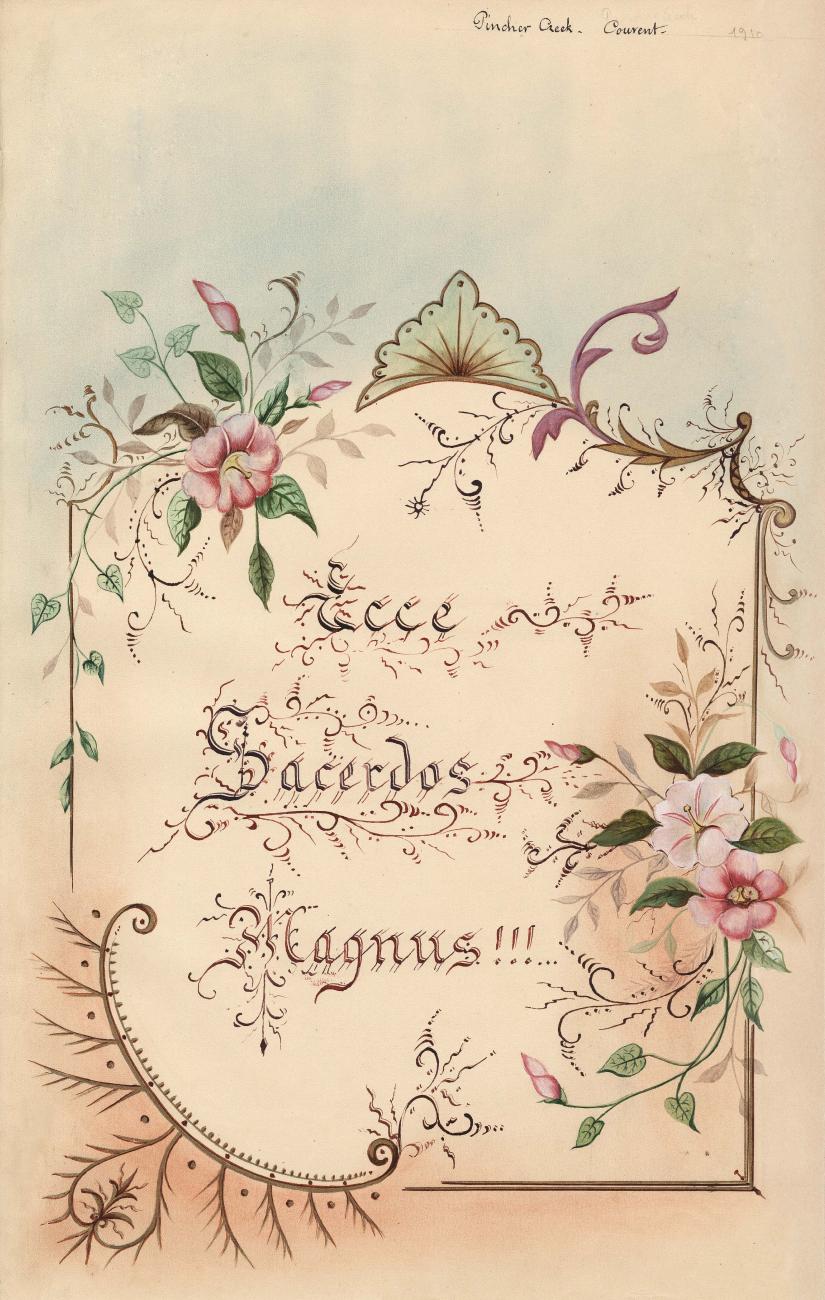 Pincher Creek. Couvent. 1910
Ecce
Sacerdos
Magnus!!!...